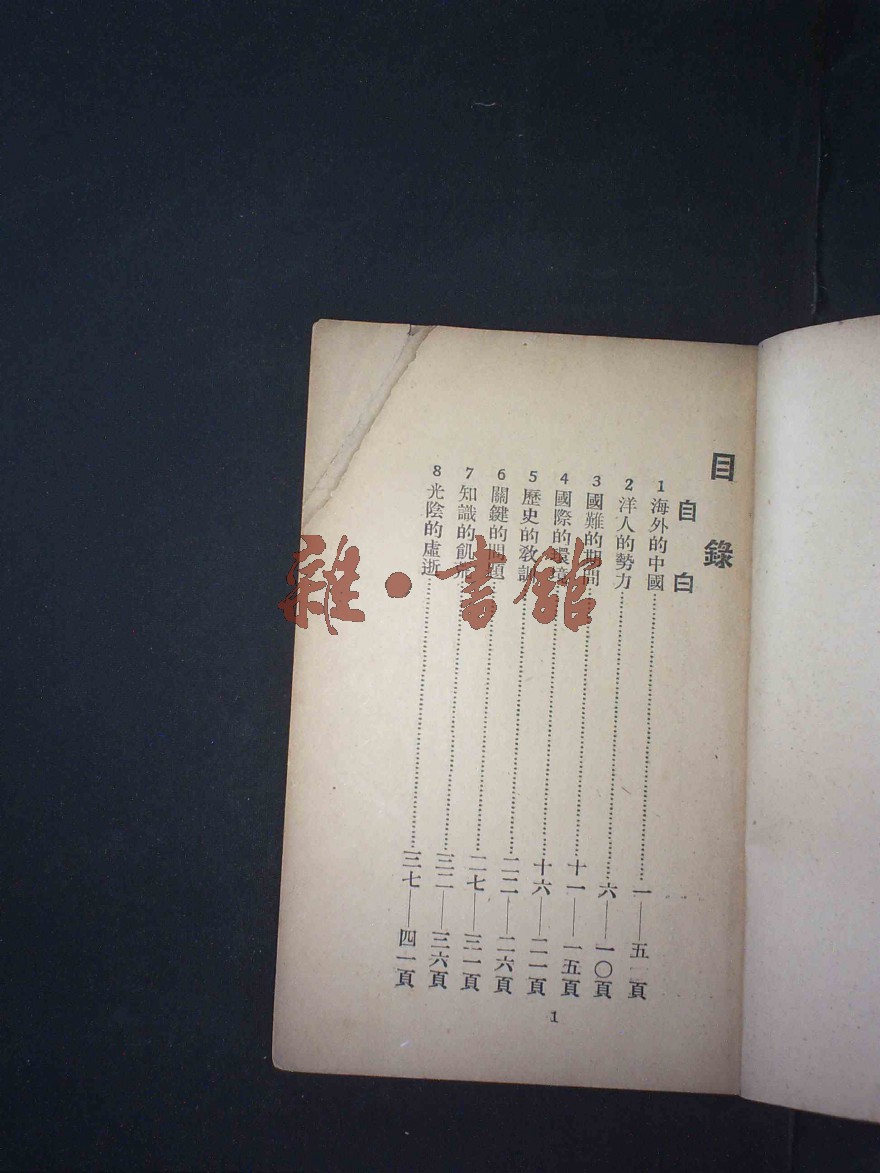 目錄
自白
1 海外的中國……一——五頁
2 洋人的勢力……六——一〇頁
3 國難的期間……十一——一五頁
4 國際的環境……十六——二一頁
5 歷史的教訓……二二——二六頁
6 關鍵的問題……二七——三一頁
7 知識的飢荒……三二——三六頁
8 光陰的虛逝……三七——四一頁
1
雜·書館